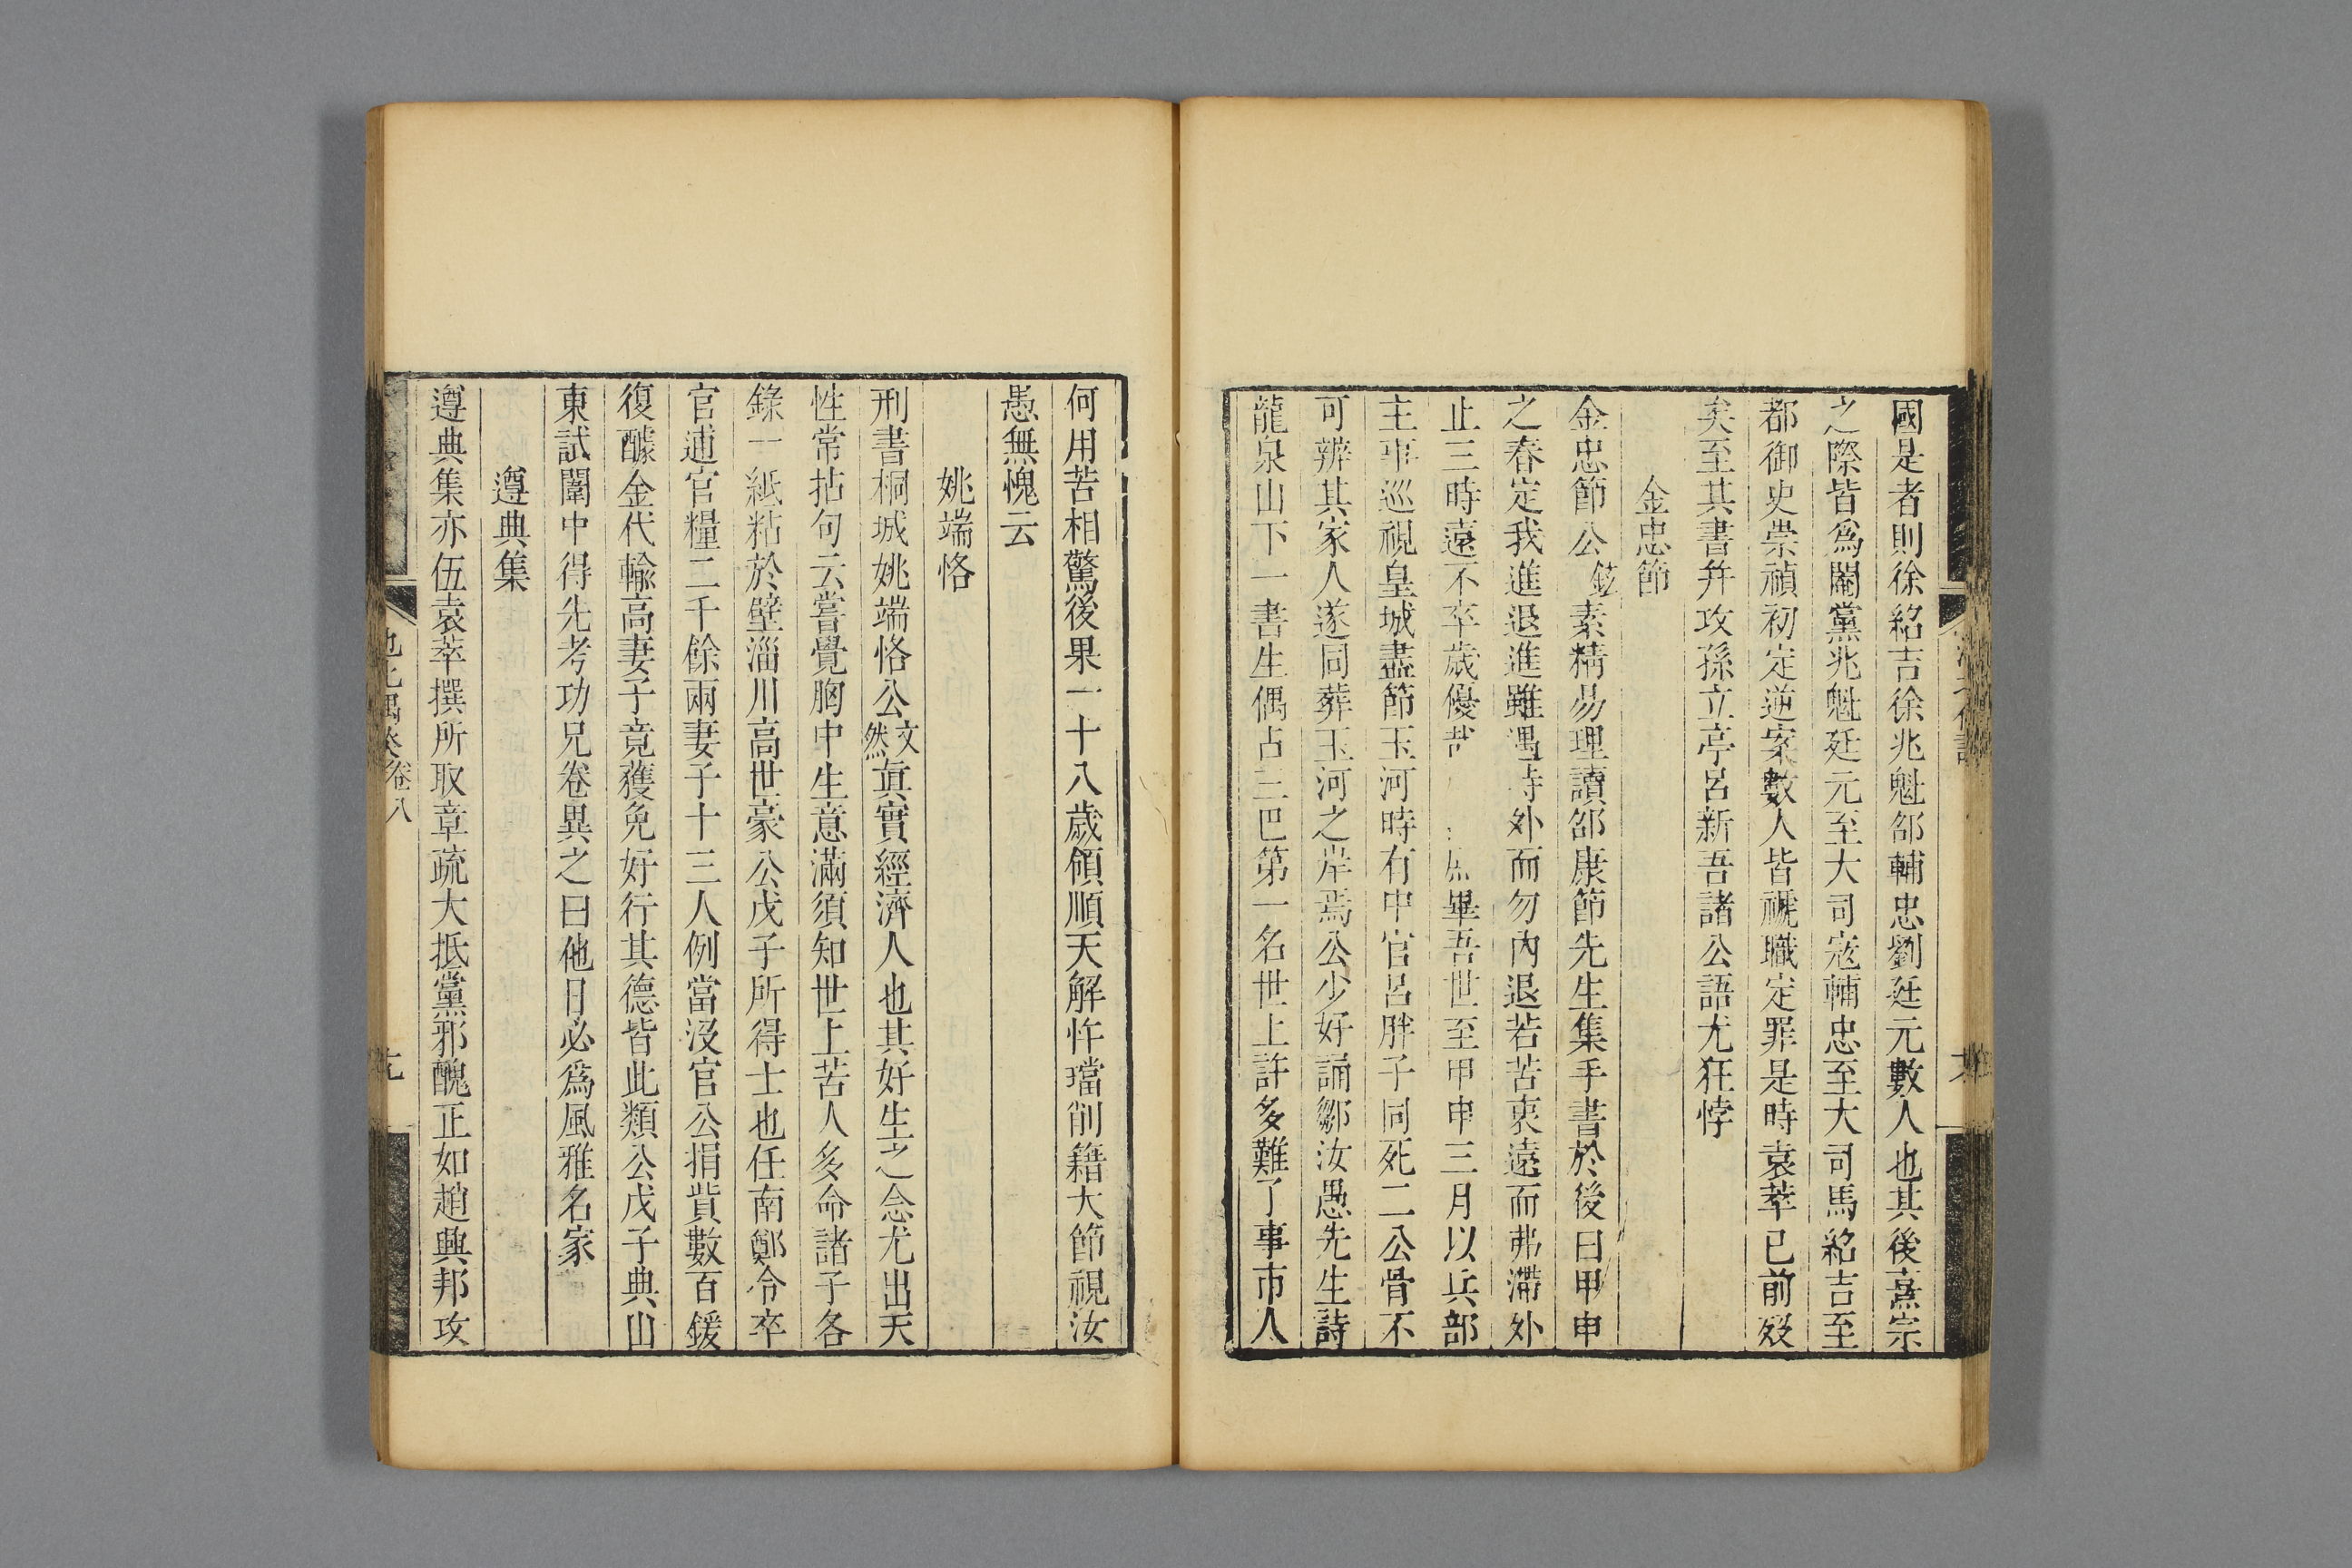 國是者則徐紹吉徐兆魁邵輔忠劉廷元數人也其後熹宗
之際皆爲閹黨兆魁廷元至大司寇輔忠至大司馬紹吉至
都御史崇禎初定逆案數人皆褫職定罪是時袁萃已前歿
矣至其書幷攻孫立亭呂新吾諸公語尤狂悖
金忠節
金忠節公鉉素精易理讀邵康節先生集手書於後曰甲申
之春定我進退進雖遇時外而勿內退若苦衷遠而弗滯外
止三時遠不卒歲優哉畢吾世至甲申三月以兵部
主事巡視皇城盡節玉河時有中官呂胖子同死二公骨不
可辨其家人遂同葬玉河之岸焉公少好誦鄒汝愚先生詩
龍泉山下一書生偶占三巴第一名世上許多難了事市人
何用苦相驚後果一十八歲領順天解忤璫削籍大節視汝
愚無愧云
姚端恪
刑書桐城姚端恪公文然眞實經濟人也其好生之念尤出天
性常拈句云嘗覺胸中生意滿須知世上苦人多命諸子各
錄一紙粘於壁淄川高世豪公戊子所得士也任南鄭令卒
官逋官糧二千餘兩妻子十三人例當沒官公捐貲數百鍰
復醵金代輸高妻子竟獲免好行其德皆此類公戊子典山
東試闈中得先考功兄卷異之曰他日必爲風雅名家
遵典集
遵典集亦伍袁萃撰所取章疏大抵黨邪醜正如趙興邦攻
池北偶談 卷八